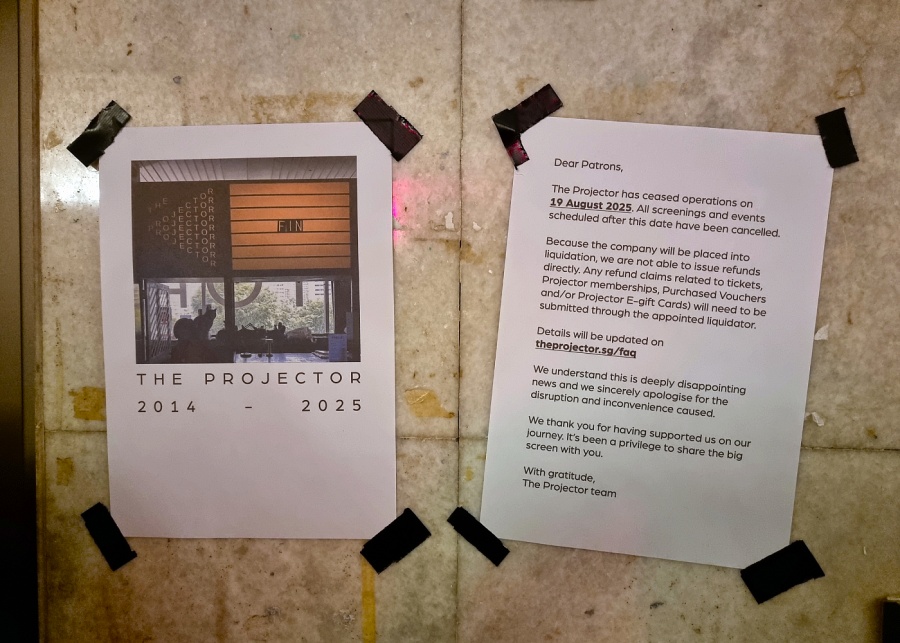 FIN
THE PROJECTOR
2014 – 2025
Dear Patrons,
The Projector has ceased operations on
19 August 2025. All screenings and events
scheduled after this date have been cancelled.
Because the company will be placed into
liquidation, we are not able to issue refunds
directly. Any refund claims related to tickets,
Projector memberships, Purchased Vouchers
and/or Projector E-gift Cards) will need to be
submitted through the appointed liquidator.
Details will be updated on
theprojector.sg/faq
We understand this is deeply disappointing
news and we sincerely apologise for the
disruption and inconvenience caused.
We thank you for having supported us on our
journey. It's been a privilege to share the big
screen with you.
With gratitude,
The Projector team